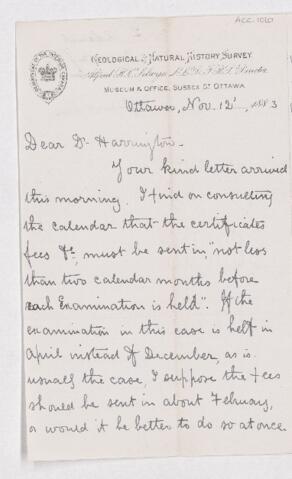 ACC. 1060
GEOLOGICAL & NATURAL HISTORY SURVEY
Alfred R. C. Selwyn L.L.D. F.R.S. Director
MUSEUM & OFFICE, SUSSEX ST OTTAWA
Ottawa, Nov. 12th, 1883
Dear Dr Harrington-
Your kind letter arrived
this morning. I find on consulting
the calendar that the certificates
fees &c, must be sent in, "not less
than two calendar months before
each Examination is held". If the
examination in this case is held in
April instead of December, as is
usually the case, I suppose the fees
should be sent in about February,
or would it be better to do so at once.